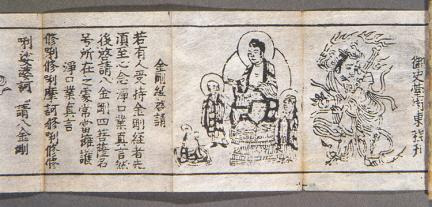 御史臺
金剛經啓請
若有人受持金剛經者先
須至心念淨口業真言然
後啓請八金剛四菩薩名
號所在之處常當擁護
淨口業真言
修唎修唎摩訶修唎修修
唎娑婆訶 請八金剛